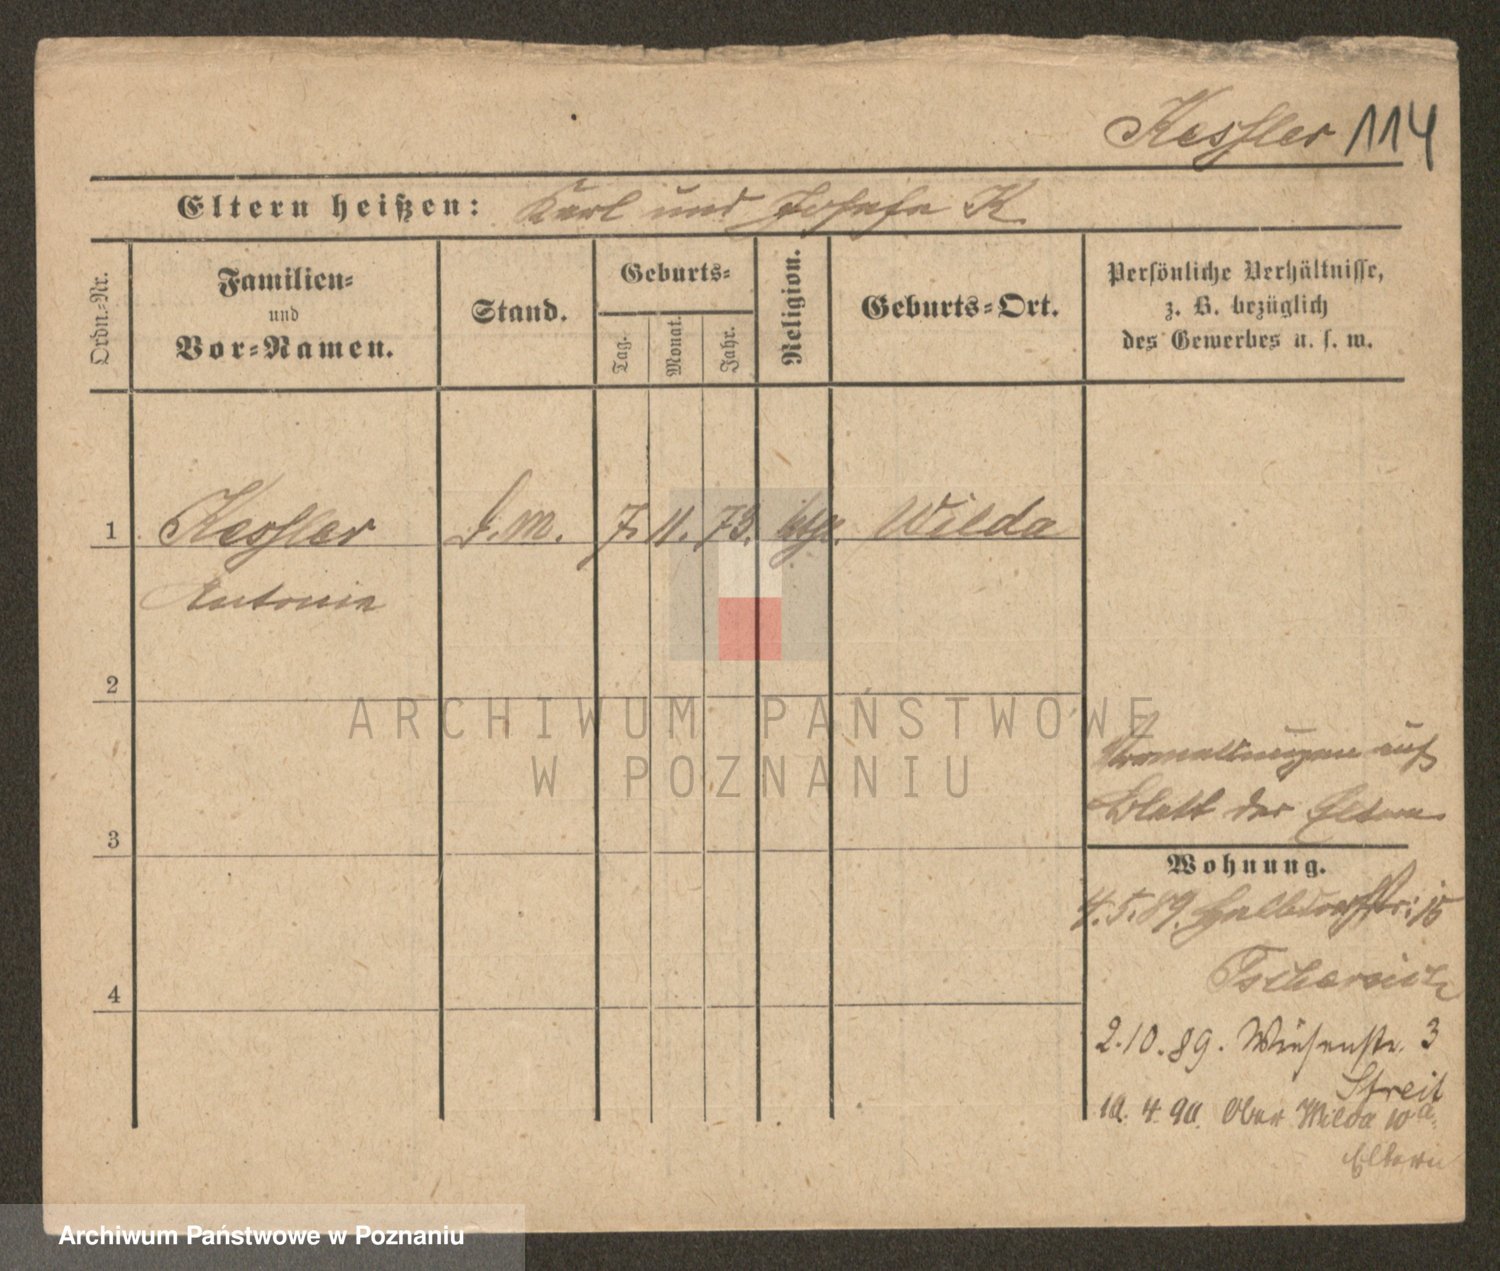 Kessler 114
Eltern heißen: Karl und Josefa K.
Ordn.-Nr.
Familien-
und
Vor-Namen.
Stand.
Geburts-
Tag.
Monat.
Jahr.
Religion.
Geburts-Ort.
Persönliche Verhältnisse,
z. B. bezüglich
des Gewerbes u. s. w.
1 Kessler d. m. 7. 11. 73. kth. Wilda
Antonie
2
ARCHIWUM PAŃSTWOWE
W POZNANIU
auf
Blatt der Eltern
3
Wohnung.
4.5.89. Halbdorfstr: 15
4
2.10.89. Wiesenstr. 3
Streit
10. 4. 90. Ober Wilda 10a.
Eltern
Archiwum Państwowe w Poznaniu